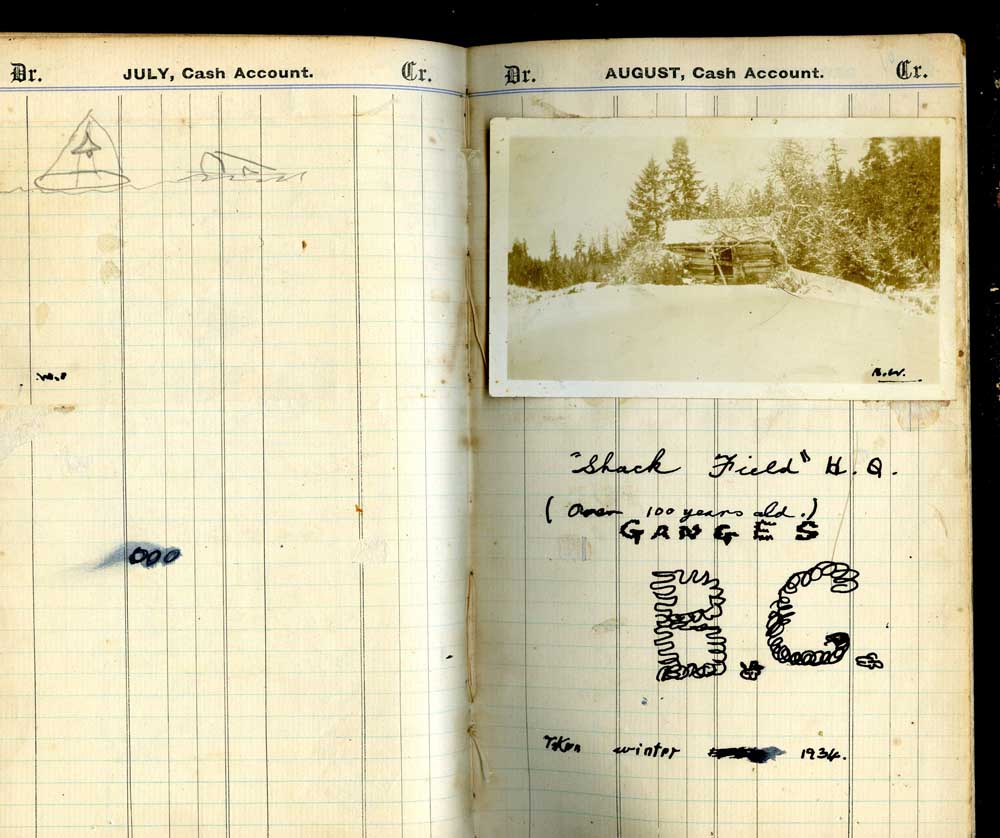 Dr. JULY, Cash Account. Cr.
000
Dr. AUGUST, Cash Account. Cr.
B.W.
"Shack Field" H.Q.
(Over 100 years old.)
GANGES
B.C.
Taken winter 1934.